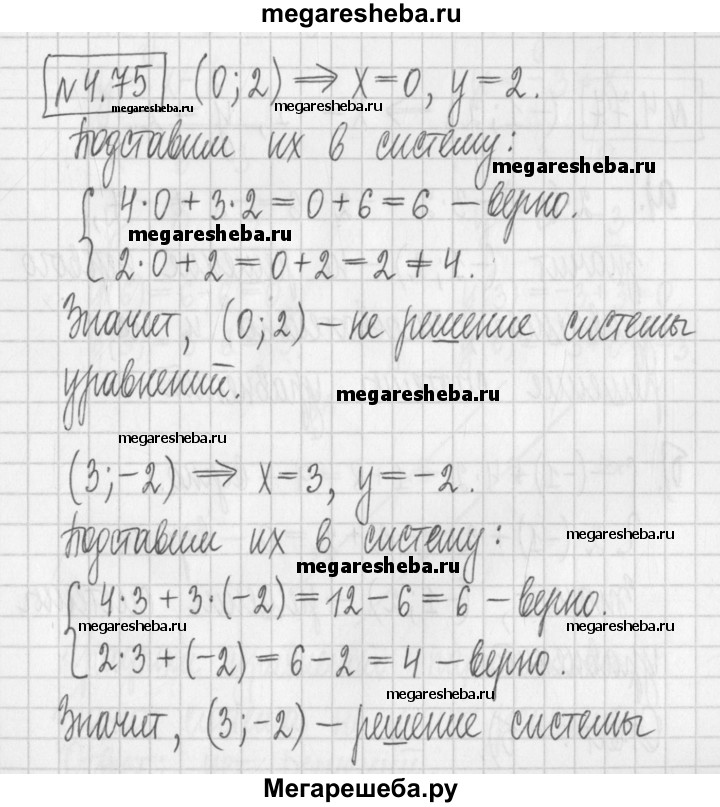 megaresheba.ru
№4.75 (0;2) ⟹ x=0, y=2.
megaresheba.ru megaresheba.ru
Подставим их в систему:
megaresheba.ru
{ 4·0+3·2=0+6=6 – верно.
megaresheba.ru
2·0+2=0+2=2≠4.
Значит, (0;2) – не решение системы
уравнений.
megaresheba.ru
megaresheba.ru
(3;-2) ⟹ x=3, y=-2.
Подставим их в систему:
megaresheba.ru
megaresheba.ru
{ 4·3+3·(-2)=12-6=6 – верно.
megaresheba.ru megaresheba.ru
2·3+(-2)=6-2=4 – верно.
megaresheba.ru
Значит, (3;-2) – решение системы
Мегарешеба.ру